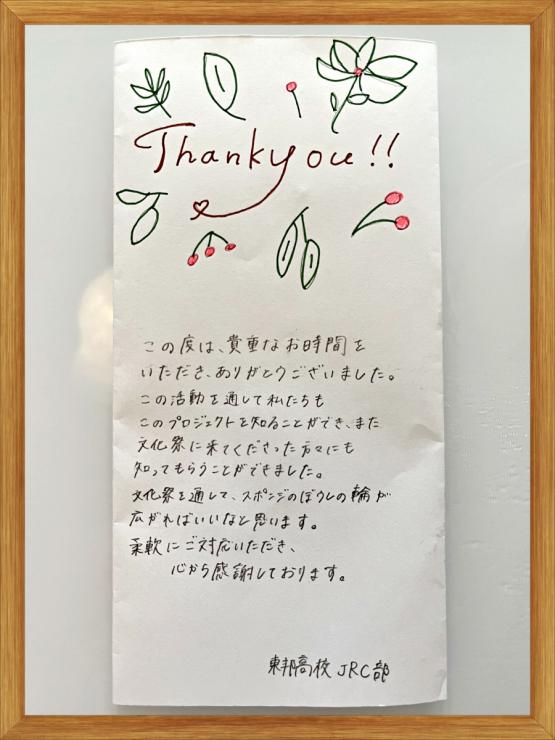 Thank you!!
この度は、貴重なお時間を
いただき、ありがとうございました。
この活動を通して私たちも
このプロジェクトを知ることができ、また
文化祭に来てくださった方々にも
知ってもらうことができました。
文化祭を通して、スポンジのぼうしの輪が
広がればいいなと思います。
柔軟にご対応いただき、
心から感謝しております。
東邦高校 JRC部